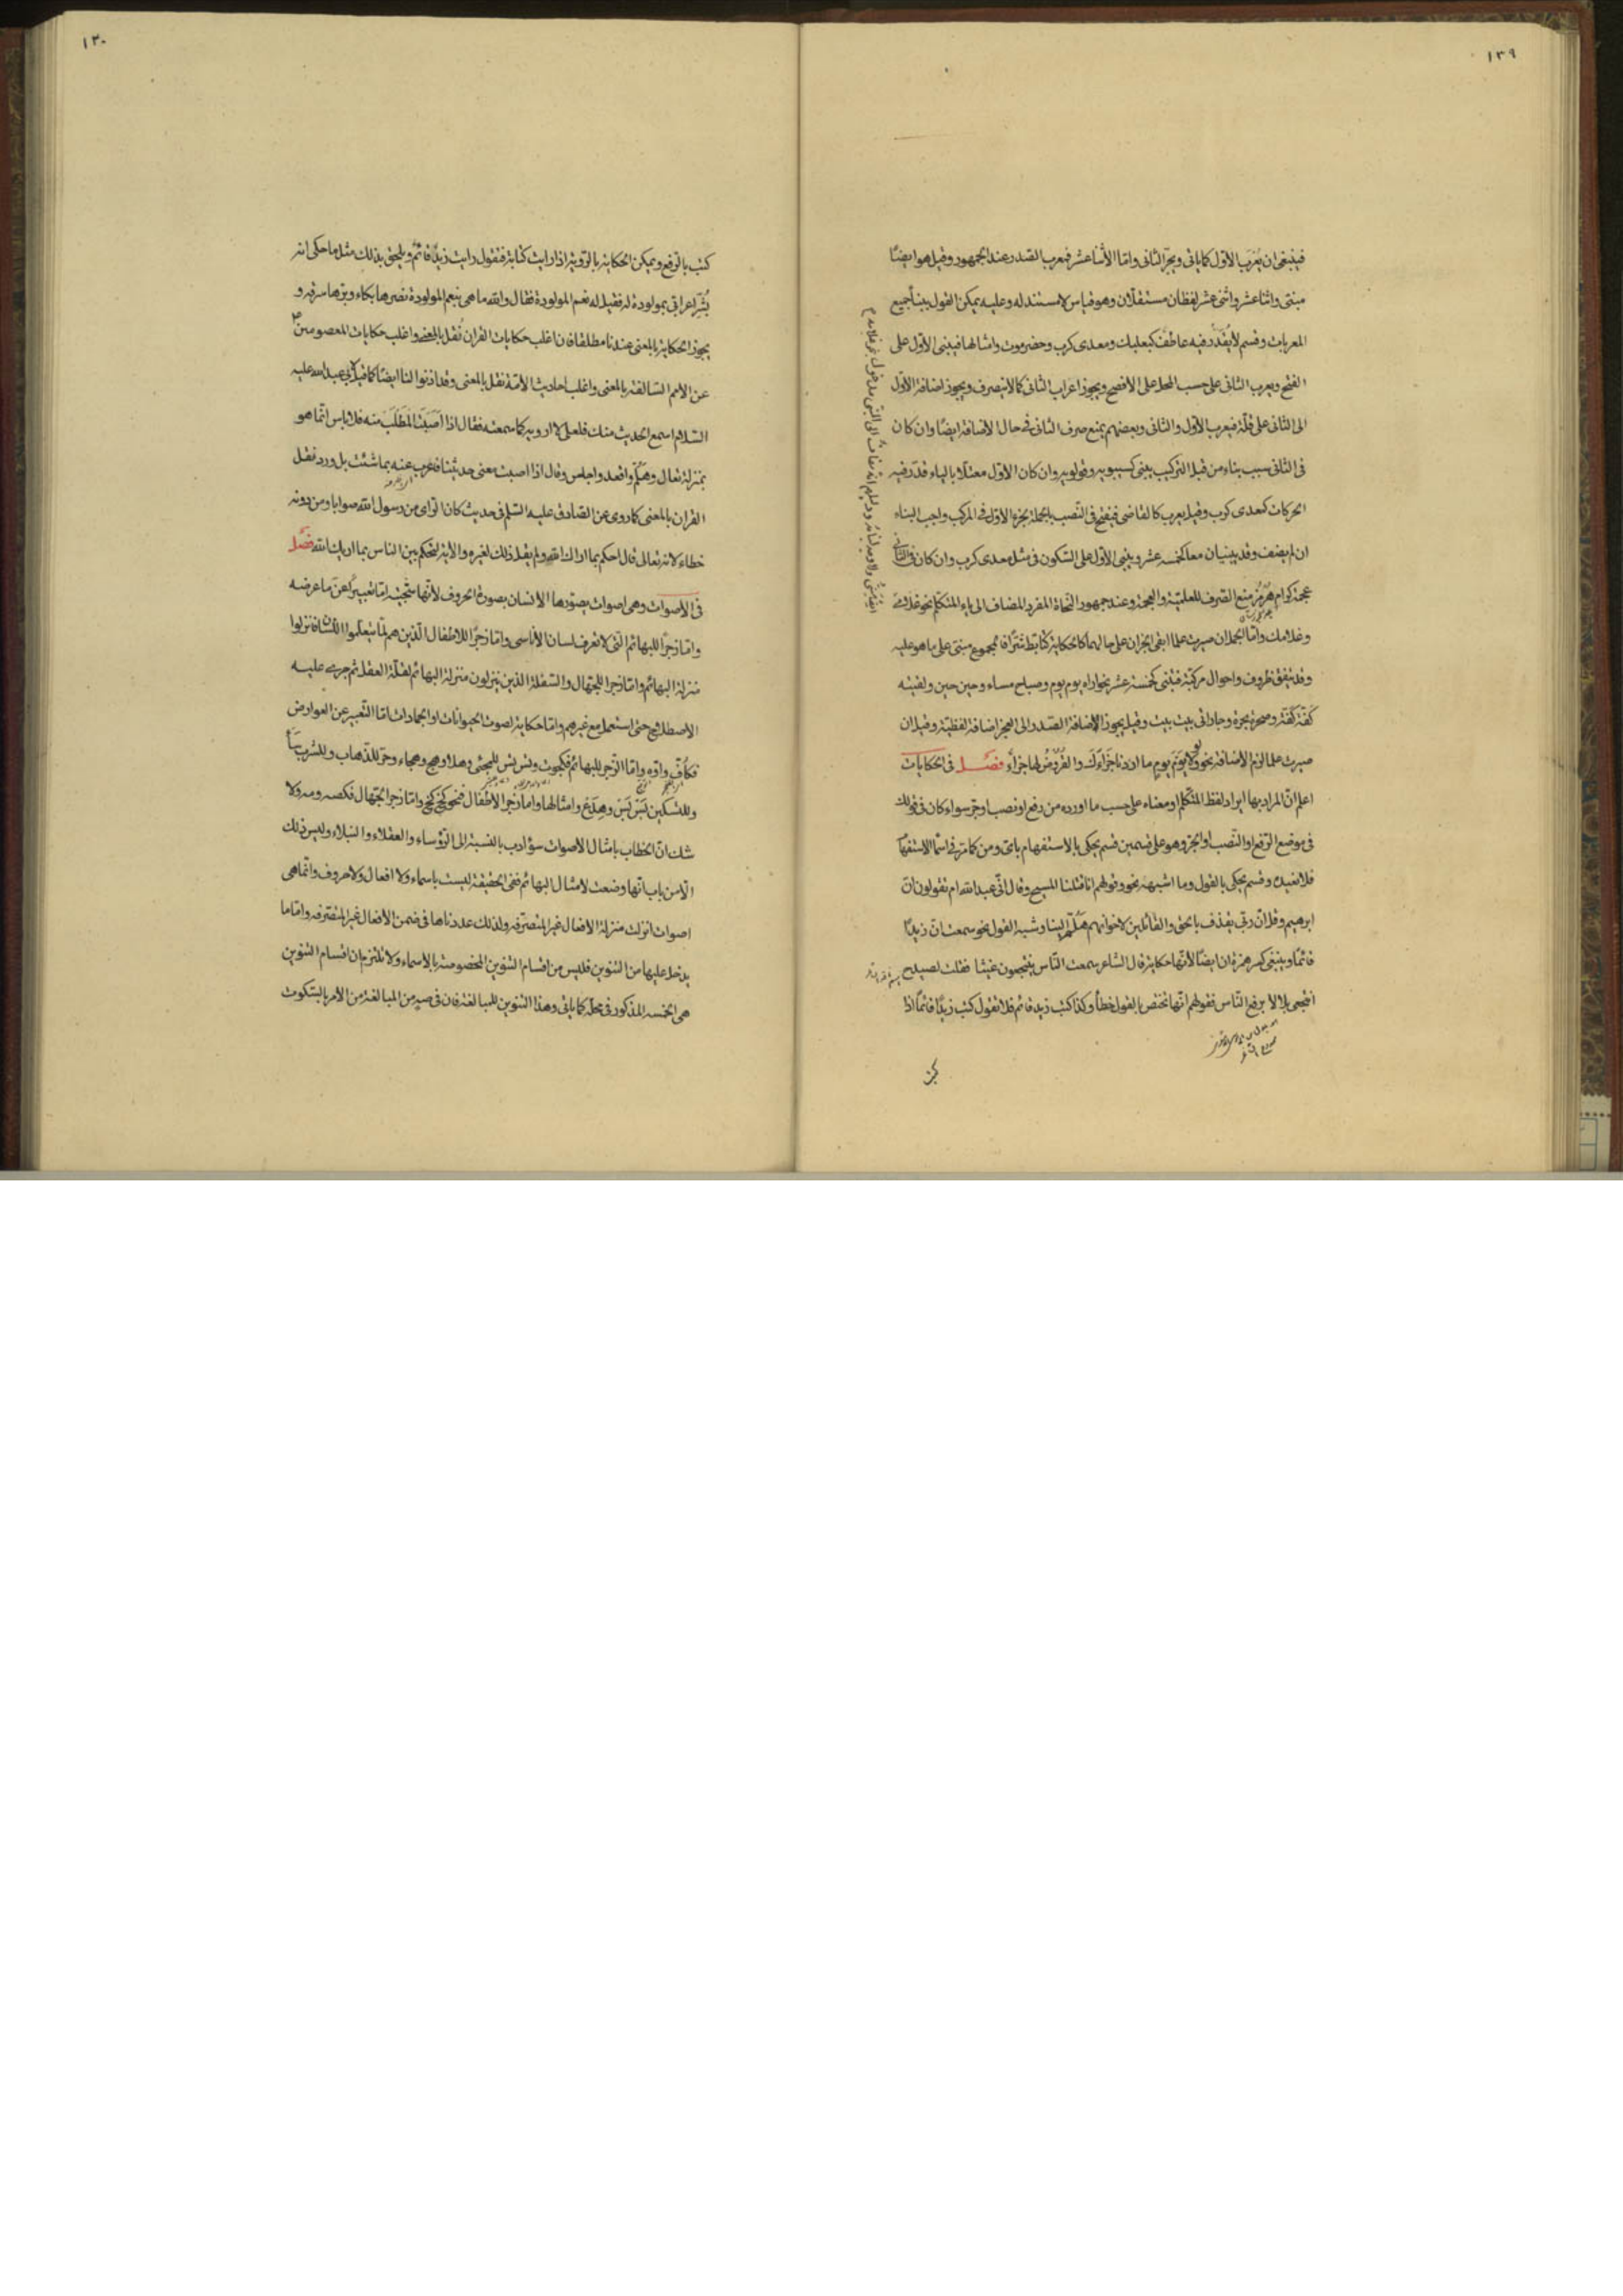 ١٣٩
فينبغى ان يُعرَب الاوّل كما ياتى ويجرّ الثانى وامّا الاثنا عشر فيعرب الصّدر عند الجمهور وقيل هو ايضًا
مبنى واثنا عشر واثنى عشر لفظان مستقلّان وهو قياس لا مستند له وعليه يمكن القول ببناء جميع
المعربات وقسم لا يُقدَّر فيه عاطف كبعلبك ومعدى كرب وحضرموت وامثالها فيبنى الاوّل على
الفتح ويعرب الثانى على حسب المحل على الافصح ويجوز اعراب الثانى كما لا ينصرف ويجوز اضافة الاوّل
الى الثانى على قلّة فيعرب الاوّل والثانى وبعضهم يمنع صرف الثانى فى حال الاضافة ايضًا وان كان
فى الثانى سبب بناء من قبل التركيب يبنى كسيبويه وقولويه وان كان الاوّل معتلّا بالياء قدّر فيه
الحركات كمعدى كرب وقيل يعرب كالقاضى فيفتح فى النّصب بالجملة يجزء الاوّل فى المركب واجب البناء
ان لم يضف وقد يبنيان معا كخمسه عشر ويبنى الاوّل على السّكون فى مثل معدى كرب وان كان فى الثانى
عجمة كرام هُرمُز منع الصّرف للعلميّة والعجمة وعند جمهور النّحاة المفرد المضاف الى ياء المتكلم نحو غلامى
وغلامك وامّا الجملة ان صيرت علما ابقى الجزان على حالهما كالحكاية كتابّط شرّا فالمجموع مبنى على ما هو عليه
وقد يتفق ظروف واحوال مركبة فتبنى كخمسة عشر نحو اراه يوم يوم وصباح مساء وحين حين ولقيته
كَفّة كَفّة وصحرة بحرة وجارانى بيت بيت وقيل يجوز الاضافة الصّدر الى العجز اضافة لفظية وقيل ان
صيرت علما لزم الاضافة نحو ولولا يومُ يومٍ ما اردنا جَزاءَك والقُروضُ لها جزاء فصل فى الحكايات
اعلم انّ المراد بها ايراد لفظ المتكلّم او معناه على حسب ما اورده من رفع او نصب او جرّ سواء كان فى قولك
فى موضع الرّفع او النّصب او الجرّ وهو على قسمين قسم يحكى بالاستفهام باىّ ومن كما مرّ فى اسماء الاستفهام
فلا نعيده وقسم يحكى بالقول وما اشبهه نحو وقولهم انا قتلنا المسيح وقال انّى عبد الله ام تقولون انّ
ابرهيم وقل انّ ربّى يقذف بالحق والقائلين لاخوانهم هَلُمّ الينا وشبه القول نحو سمعت انّ زيدًا
قائمًا وينبغى كسر همزة ان ايضًا لانّها حكاية قال الشاعر سمعت النّاس ينتجعون غيثا فقلت لصيدح
انتجعى بلالا برفع النّاس فقولهم انّها تختص بالقول خطأ وكذا كتب زيد قائم فلا تقول كتب زيدًا قائمًا اذا
كتب
١٣٠
كتب بالرّفع ويمكن الحكاية بالرّوية اذا رايت كتابة فتقول رايت زيدٌ قائمٌ ويلحق بذلك مثل ما حكى انه
بُشّر اعرابى بمولودة له فقيل له نعم المولودة فقال والله ما هى بنعم المولودة نصرها بكاء وبرّها سرقه و
يجوز الحكاية بالمعنى عندنا مطلقا فان اغلب حكايات القران نُقل بالمعنى واغلب حكايات المعصومين
عن الامم السّالفة بالمعنى واغلب احاديث الائمّة نقل بالمعنى وقد اذنوا لنا ايضًا كما قيل لابى عبد الله عليه
السّلام اسمع الحديث منك فلعلى لا ارويه كما سمعته فقال اذا اَصَبتَ المطلَب منه فلا باس انّما هو
بمنزلة تعال وهلُمّ واقعد واجلس وقال اذا اصبت معنى حديثنا فاعرب عنه بما شئت بل ورد نقل
القران بالمعنى كما روى عن الصّادق عليه السّلم فى حديث كان الراى من رسول الله صوابا ومن دونه
خطاء لانه تعالى قال احكم بما اراك الله ولم يقل ذلك لغيره والاية لتحكم بين الناس بما اريك الله فصل
فى الاصوات وهى اصوات يصوّرها الانسان بصورة الحروف لانّها سجيّته امّا تعبيرًا عن ما عرضه
وامّا زجرًا للبهائم الّتى لا تعرف لسان الاناسى وامّا زجرًا للاطفال الّذين هم لمّا يتعلّموا اللّسان فنزلوا
منزلة البهائم وامّا زجرا للجهّال والسّفلة الذين ينزلون منزلة البهائم لقلّة العقل ثم جرى عليه
الاصطلاح حتى استعمل مع غيرهم وامّا حكاية لصوت الحيوانات او الجمادات امّا التّعبير عن العوارض
فكاُفّ واوّه وامّا الزّجر للبهائم فكجوت وتش تش للمجئى وهلا وهج وهجاء وحرّ للذّهاب وللشرب سَأ
وللتسكين بَسَ بَسَ وهِدَعْ وامثالها وامّا زجر الأطفال فنحو كِخ كِخ وامّا زجر الجهّال فكصه ومه ولا
شك انّ الخطاب بامثال الاصوات سؤ ادب بالنسبة الى الرّؤساء والعقلاء والنبلاء وليس ذلك
الّا من باب انّها وضعت لامثال البهائم ففى الحقيقة ليست باسماء ولا افعال ولا حروف وانّما هى
اصوات انزلت منزلة الافعال غير المتصرّفه ولذلك عددناها فى ضمن الأفعال غير المتصرّفه وامّا ما
يدخل عليها من التنوين فليس من اقسام التنوين المخصوصة بالاسماء ولا نلتزم ان اقسام التنوين
هى الخمسه المذكور فى محلّه كما ياتى وهذا التنوين للمبالغة فان فى صهٍ من المبالغة من الأمر بالسّكوت